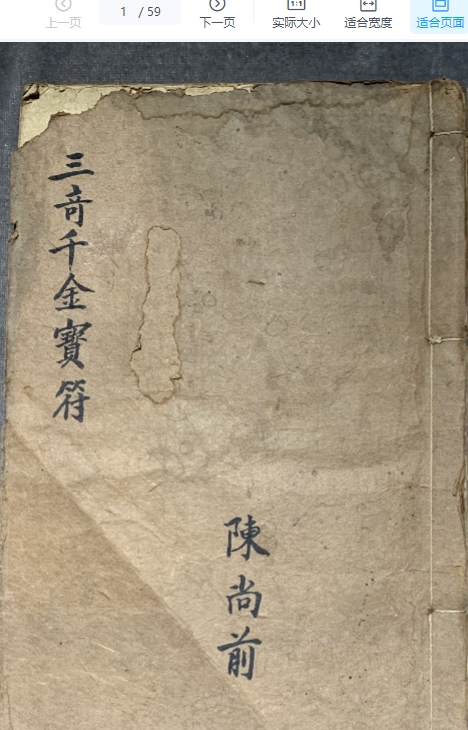 上一页
1 / 59
下一页
1:1
实际大小
适合宽度
适合页面
三奇千金寶符
陳尚前